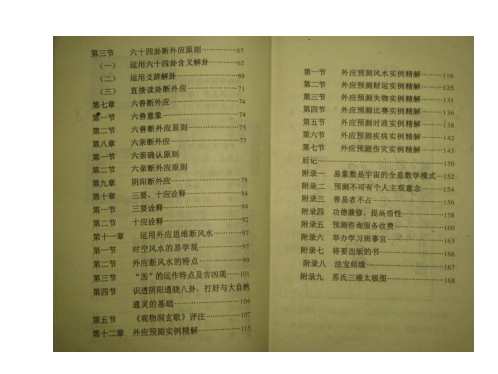 第三节 六十四卦断外应原则 65
（一） 运用六十四卦含义解卦 65
（二） 运用爻辞解卦 69
（三） 直接读卦断外应 71
第七章 六兽断外应 74
第一节 六兽意象 74
第二节 六兽断外应原则 75
第八章 六亲断外应 77
第一节 六亲确认原则
第二节 六亲断外应原则
第九章 阴阳断外应
第十章 三要、十应诠释
第一节 三要诠释
第二节 十应诠释
第十一章 运用外应思维断风水
第一节 时空风水的易学观
第二节 外应断风水的特点
第三节 的运作特点及吉凶观 101
第四节 识透阴阳通晓八卦，打好与大自然
通灵的基础 106
第五节 《观物洞玄歌》评注 107
第十二章 外应预测实例精解 115
第一节 外应预测风水实例精解 116
第二节 外应预测财运实例精解 125
第三节 外应预测失物实例精解 131
第四节 外应预测比赛实例精解 136
第五节 外应预测时波实例精解 138
第六节 外应预测疾病实例精解 142
第七节 外应预测伤灾实例精解 143
后记 150
附录一 易量数是宇宙的全息数学模式 152
附录二 预测不可有个人主观意念 154
附录三 善易者不占
附录四 功德兼修，提炼悟性
附录五 预测咨询服务收费
附录六 举办学习班事宜 163
附录七 将要出版的书 165
附录八 法宝结缘 166
附录九 苏氏三维太极图 168